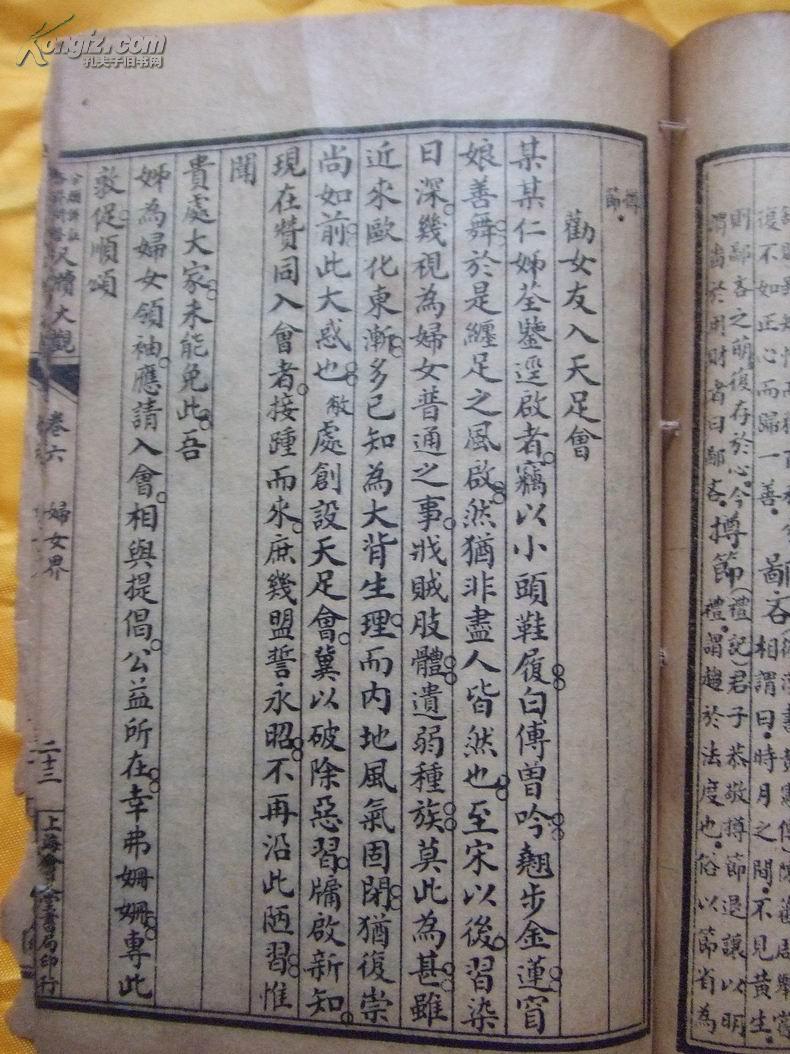 Kongfz.com
孔夫子旧书网
復不如正心而歸一善。鄙吝
相謂曰。時月之間。不見黃生
則鄙吝之萌復存於心。今
謂嗇於用財者曰鄙吝。撙節
(禮記)君子恭敬撙節退讓以明
禮。謂趨於法度也。俗以節省為
撙
節。
勸女友入天足會
某某仁姊荃鑒逕啟者。竊以小頭鞋履白傅曾吟翹步金蓮窅
娘善舞於是纏足之風啟。然猶非盡人皆然也。至宋以後。習染
日深。幾視為婦女普通之事。戕賊肢體遺弱種族。莫此為甚。雖
近來歐化東漸。多已知為大背生理。而內地風氣固閉。猶復崇
尚如前。此大惑也。敝處創設天足會。冀以破除惡習。牖啟新知。
現在贊同入會者。接踵而來。庶幾盟誓永昭。不再沿此陋習。惟
聞
貴處大家。未能免此。吾
姊為婦女領袖。應請入會。相與提倡。公益所在。幸弗姍姍。專此
敦促。順頌
分類詳註
尺牘大觀
卷六
婦女界
二十三
上海會堂書局印行